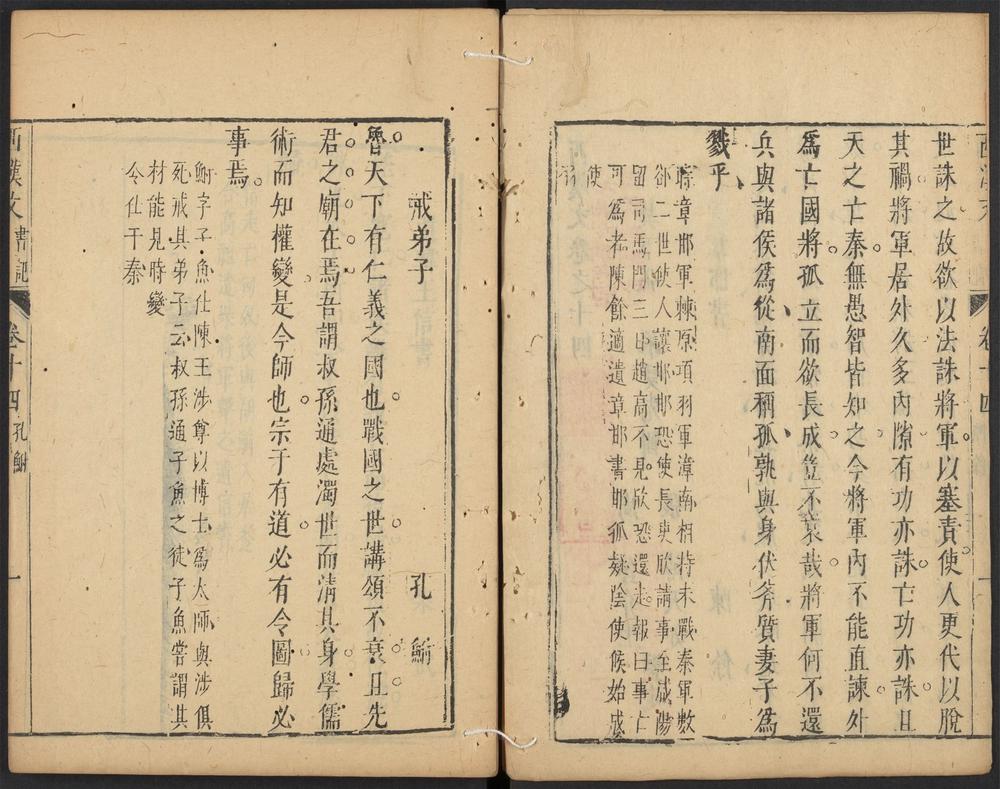 世誅之故欲以法誅將軍以塞責使人更代以脫
其禍將軍居外久多內隙有功亦誅亡功亦誅且
天之亡秦無愚智皆知之今將軍內不能直諫外
為亡國將孤立而欲長成豈不哀哉將軍何不還
兵與諸侯為從南面稱孤孰與身伏斧質妻子為
戮乎
章邯軍棘原項羽軍漳南相持未戰秦軍數
卻二世使人讓邯邯恐使長史欣請事至咸陽
留司馬門三日趙高不見欣恐還走報曰事亡
可為者陳餘適遺章邯書邯狐疑陰使候始成
使
西漢文
卷十四
戒弟子
孔鮒
魯天下有仁義之國也戰國之世講頌不衰且先
君之廟在焉吾謂叔孫通處濁世而清其身學儒
術而知權變是今師也宗于有道必有令圖歸必
事焉
鮒字子魚仕陳王涉尊以博士為太師與涉俱
死戒其弟子云叔孫通子魚之徒子魚嘗謂其
材能見時變
令仕于秦
西漢文書記
卷十四
孔鮒
一